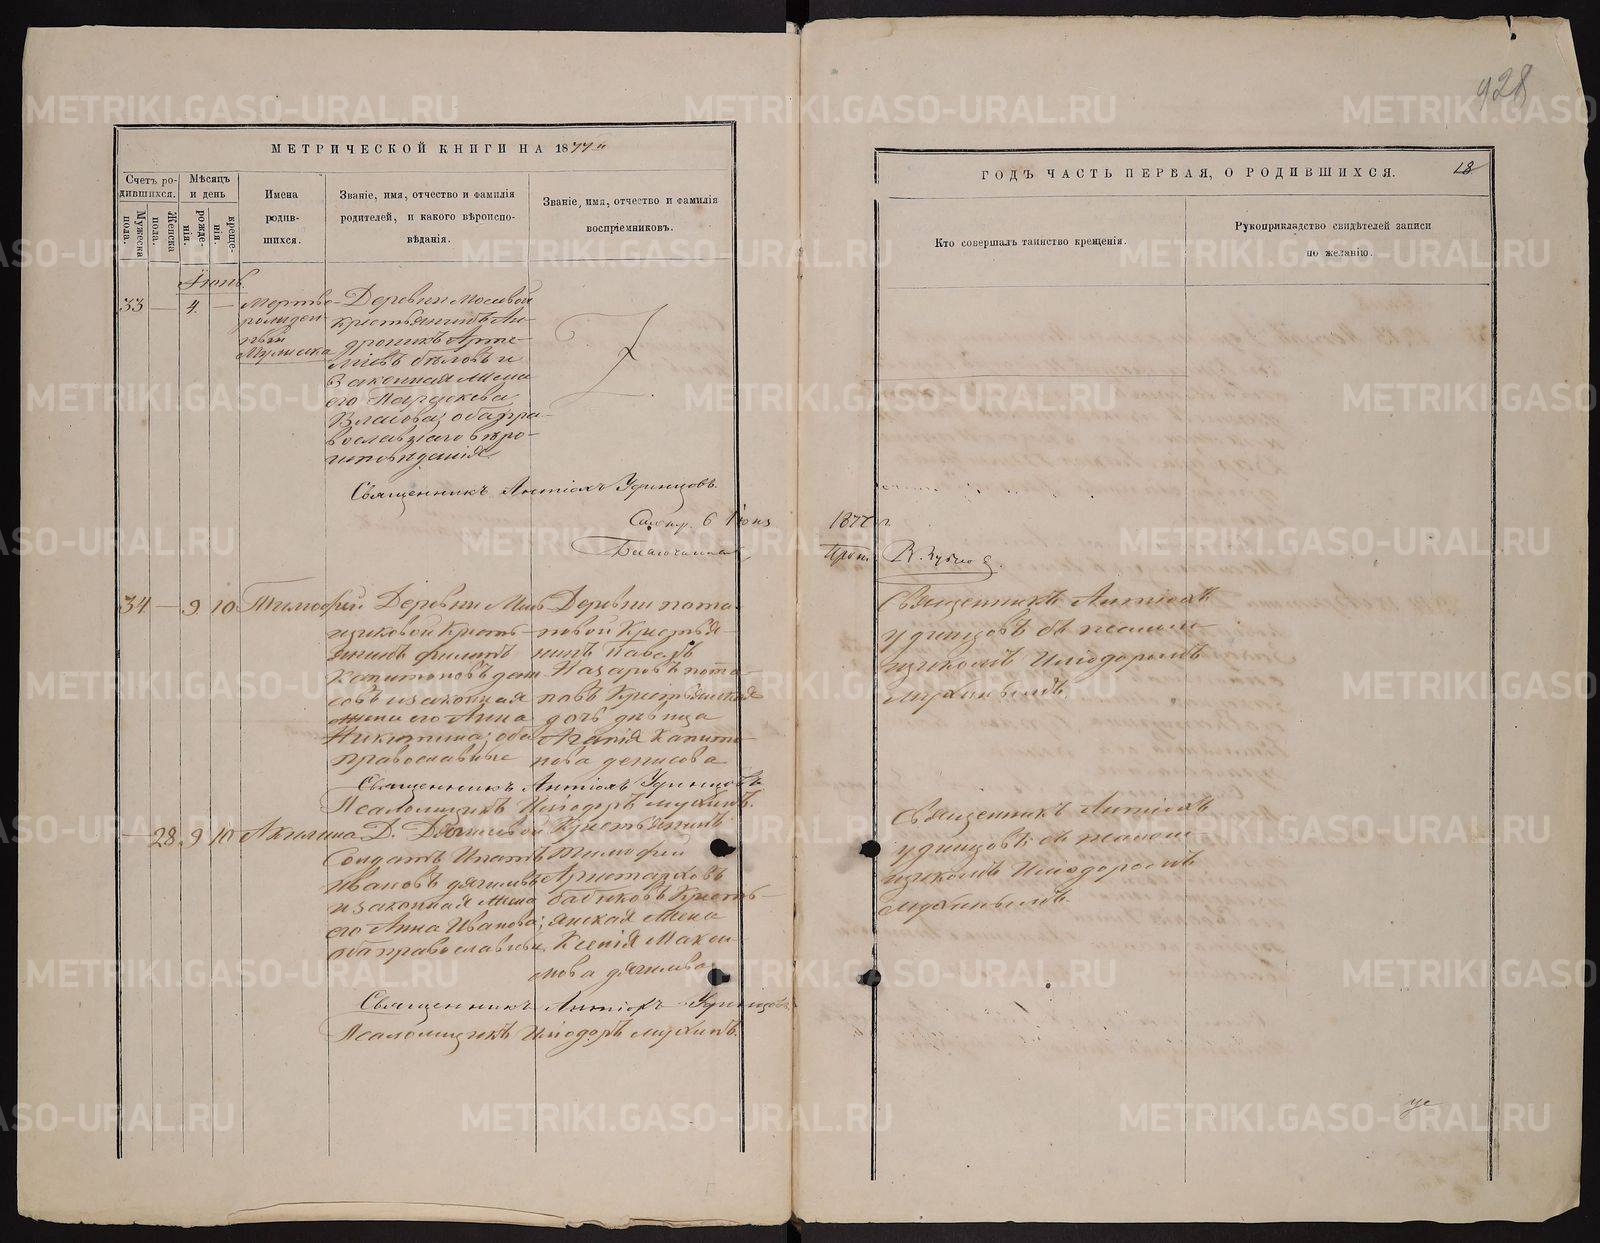 928
МЕТРИЧЕСКОЙ КНИГИ НА 1877
ГОДЪ ЧАСТЬ ПЕРВАЯ, О РОДИВШИХСЯ.
18
Счетъ ро-
дившихся.
Мужеска
пола.
Женска
пола.
Мѣсяцъ
и день
рожде-
нія.
креще-
нія.
Имена
родив-
шихся.
Званіе, имя, отчество и фамилія
родителей, и какого вѣроиспо-
вѣданія.
Званіе, имя, отчество и фамилія
воспріемниковъ.
Кто совершалъ таинство крещенія.
Рукоприкладство свидѣтелей записи
по желанію.
Іюнь
33 — 4. —
Мертво-
рожден-
ный
Деревни
крестьянинъ Ан-
дроникъ Арте-
Бѣловъ и
законная жена
его
Власова; оба пра-
вославнаго вѣро-
исповѣданія
Священникъ Антіохъ Удинцовъ
6 Іюня
1877 г.
Благочинный
34 — 9 10
Тимофей
Деревни
крестья-
нинъ Филипъ
Капитоновъ
и законная
жена его Анна
Никитина; оба
православные
Деревни Пота-
повой крестья-
нинъ Павелъ
Назаровъ Пота-
повъ крестьянская
дочь дѣвица
Агапія Капито-
нова Денисова
Священникъ Антіохъ
Удинцовъ съ псалом-
щикомъ Иліодоромъ
Мухинымъ
Священникъ Антіохъ Удинцовъ
Псаломщикъ Иліодоръ Мухинъ.
— 28. 9 10
Акилина
Д. Дягилевой
Солдатъ Игнатъ
Ивановъ Дягилевъ
и законная жена
его Анна Иванова;
оба православные
Крестьянинъ
Тимофей
Аристарховъ
Бабиковъ крест-
янская жена
Ксенія Макси-
мова Дягилева
Священникъ Антіохъ
Удинцовъ съ псалом-
щикомъ Иліодоромъ
Мухинымъ.
Священникъ Антіохъ Удинцовъ
Псаломщикъ Иліодоръ Мухинъ.
METRIKI.GASO-URAL.RU